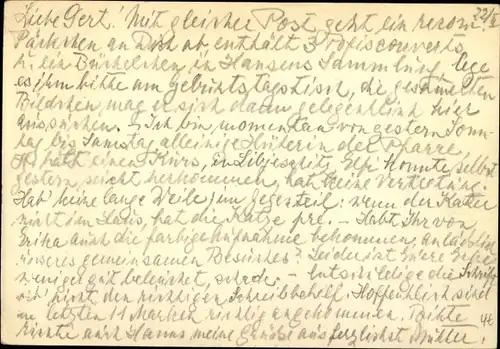 Liebe Gert! Mit gleicher Post geht ein rekom. 22/2
Päckchen an Dich ab, enthält 3 couverts
u. ein Bürkelchen in Hansens Sammlung, lege
es ihm bitte am Geburtstagstisch, die gesamten
Bildchen mag er sich dann gelegentlich hier
aussuchen. – Ich bin momentan von gestern Sonn-
tag bis Samstag alleinige Hüterin der Pfarre
hat einen Kurs, in Elfi konnte selbst
gestern nicht herkommen, hat keine Vertretung.
Hab keine lange Weile, im Gegenteil: wenn der Kater
nicht im Haus, hat die Katze – Habt Ihr von
Erika auch die farbige Aufnahme bekommen, anläßlich
unseres gemeinsamen Besuches? Leider ist Eure Ecke
weniger gut beleuchtet, schade – entschuldige die Schrift
nicht den richtigen Schreibbehelf. Hoffentlich sind
die letzten 11 Marken richtig angekommen. Bitte
richte auch Hanns meine Grüße aus herzlichst Mutter!